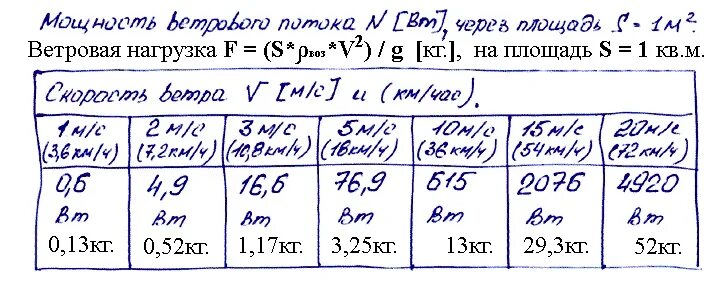 Мощность ветрового потока N [Вт], через площадь S = 1 м².
Ветровая нагрузка F = (S*ρвоз*V²) / g [кг.], на площадь S = 1 кв.м.
Скорость ветра V [м/с] и (км/час).
1 м/с 2 м/с 3 м/с 5 м/с 10 м/с 15 м/с 20 м/с
(3,6 км/ч) (7,2 км/ч) (10,8 км/ч) (18 км/ч) (36 км/ч) (54 км/ч) (72 км/ч)
0,6 4,9 16,6 76,9 615 2076 4920
Вт Вт Вт Вт Вт Вт Вт
0,13кг. 0,52кг. 1,17кг. 3,25кг. 13кг. 29,3кг. 52кг.